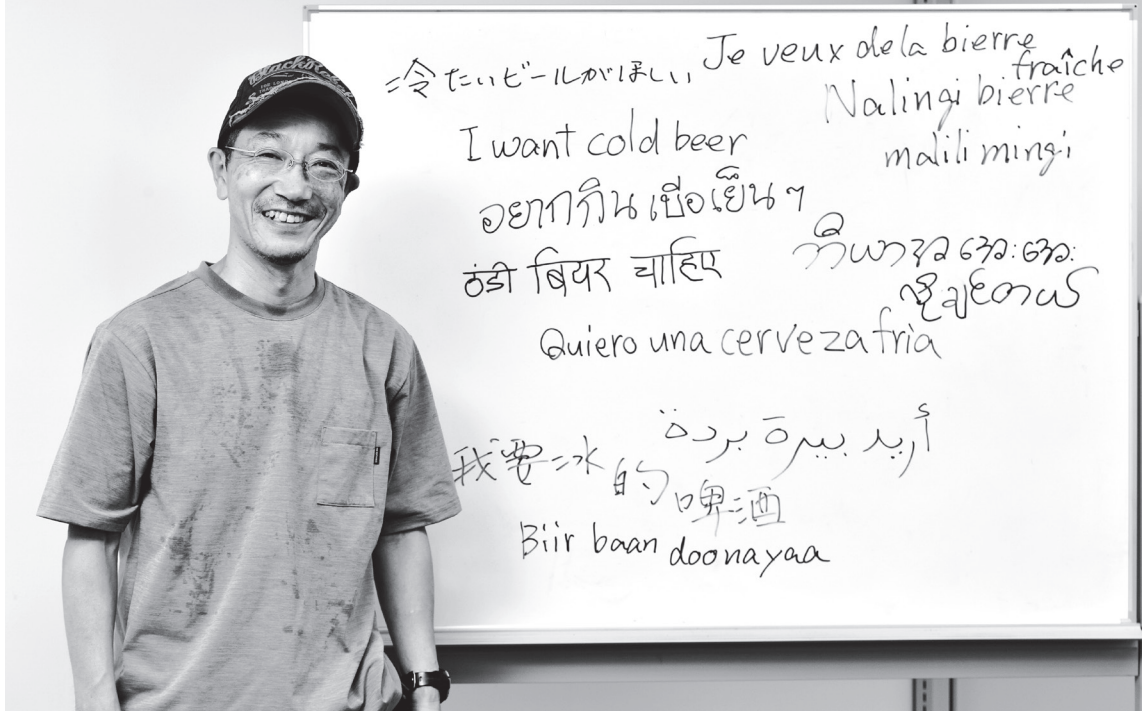 冷たいビールがほしい
Je veux de la bierre
fraîche
Nalingi bierre
malili mingi
I want cold beer
อยากกิน เบียเย็น ๆ
ठंडी बियर चाहिए
ဘီယာ အေးအေး
လိုချင်တယ်
Quiero una cerveza frìa
أريد بيرة بردة
我要冰的啤酒
Biir baan doonayaa